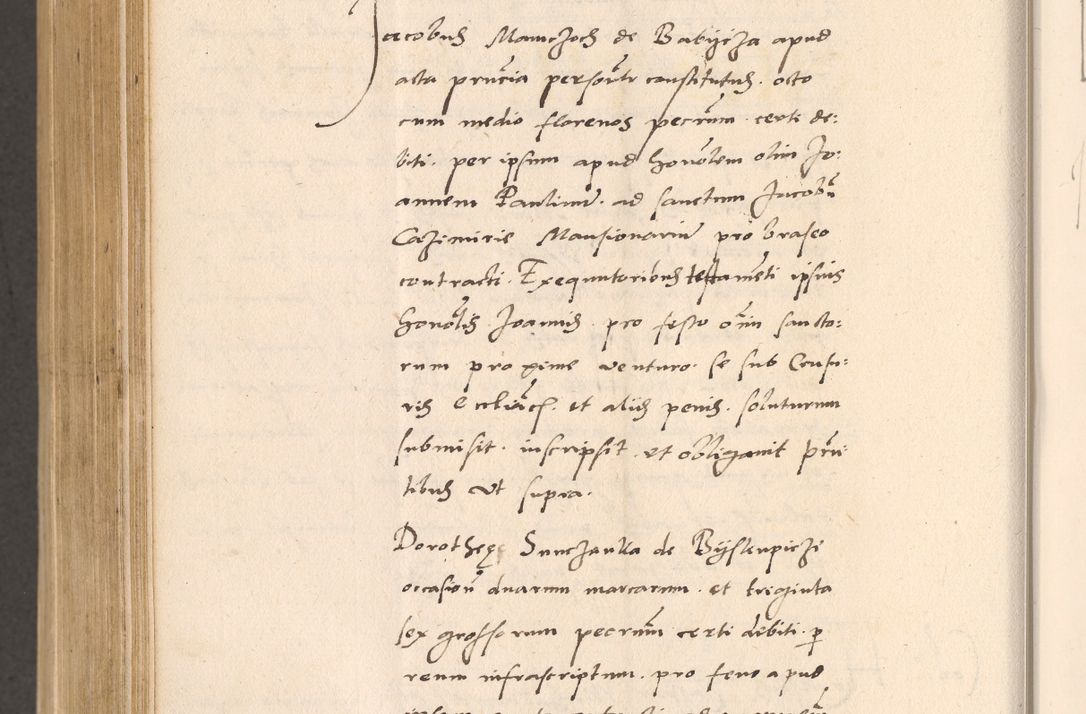 Jacobus Mamczoch de Babÿcza apud
acta prñcia persoñtr constitutus. octo
cum medio florenos pecrum certi de:
biti. per ipsum apud honolem olim Jo:
annem Paulinū. ad sanctum Jacobū
Cazimirie Mansionariū pro braseo
contracti. Exequutoribus testamēti ipsius
honolis Joannis. pro festo oīm sancto:
rum proxime venturo. se sub Censu:
ris ecclīaces. et aliis penis. soluturum
submisit. inscripsit. et obligavit prñ
tibus ut supra.
Dorotheę de
occasioñ duarum marcarum. et triginta
sex grossorum pecrum certi debiti. per
reum infrascriptum. pro feno apud